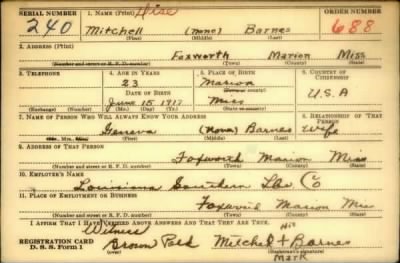 SERIAL NUMBER 1. NAME (Print) ORDER NUMBER
240 Mitchell (none) Barnes 688
(First) (Middle) (Last)
2. ADDRESS (Print)
Foxworth Marion Miss
(Number and street or R. F. D. number) (Town) (County) (State)
3. TELEPHONE 4. AGE IN YEARS 5. PLACE OF BIRTH 6. COUNTRY OF CITIZENSHIP
23 Marion
DATE OF BIRTH (Town or county)
June 15 1917 Miss U.S.A
(Exchange) (Number) (Mo.) (Day) (Yr.) (State or country)
7. NAME OF PERSON WHO WILL ALWAYS KNOW YOUR ADDRESS 8. RELATIONSHIP OF THAT PERSON
Geneva (None) Barnes Wife
(Mr., Mrs., Miss) (First) (Middle) (Last)
9. ADDRESS OF THAT PERSON
Foxworth Marion Miss
(Number and street or R. F. D. number) (Town) (County) (State)
10. EMPLOYER'S NAME
Louisiana Southern Lbr. Co
11. PLACE OF EMPLOYMENT OR BUSINESS
Foxworth Marion Miss
(Number and street or R. F. D. number) (Town) (County) (State)
I AFFIRM THAT I HAVE VERIFIED ABOVE ANSWERS AND THAT THEY ARE TRUE.
Witness His
REGISTRATION CARD Mitchel + Barnes
D. S. S. Form 1 (over) (Registrant's signature)
Mark